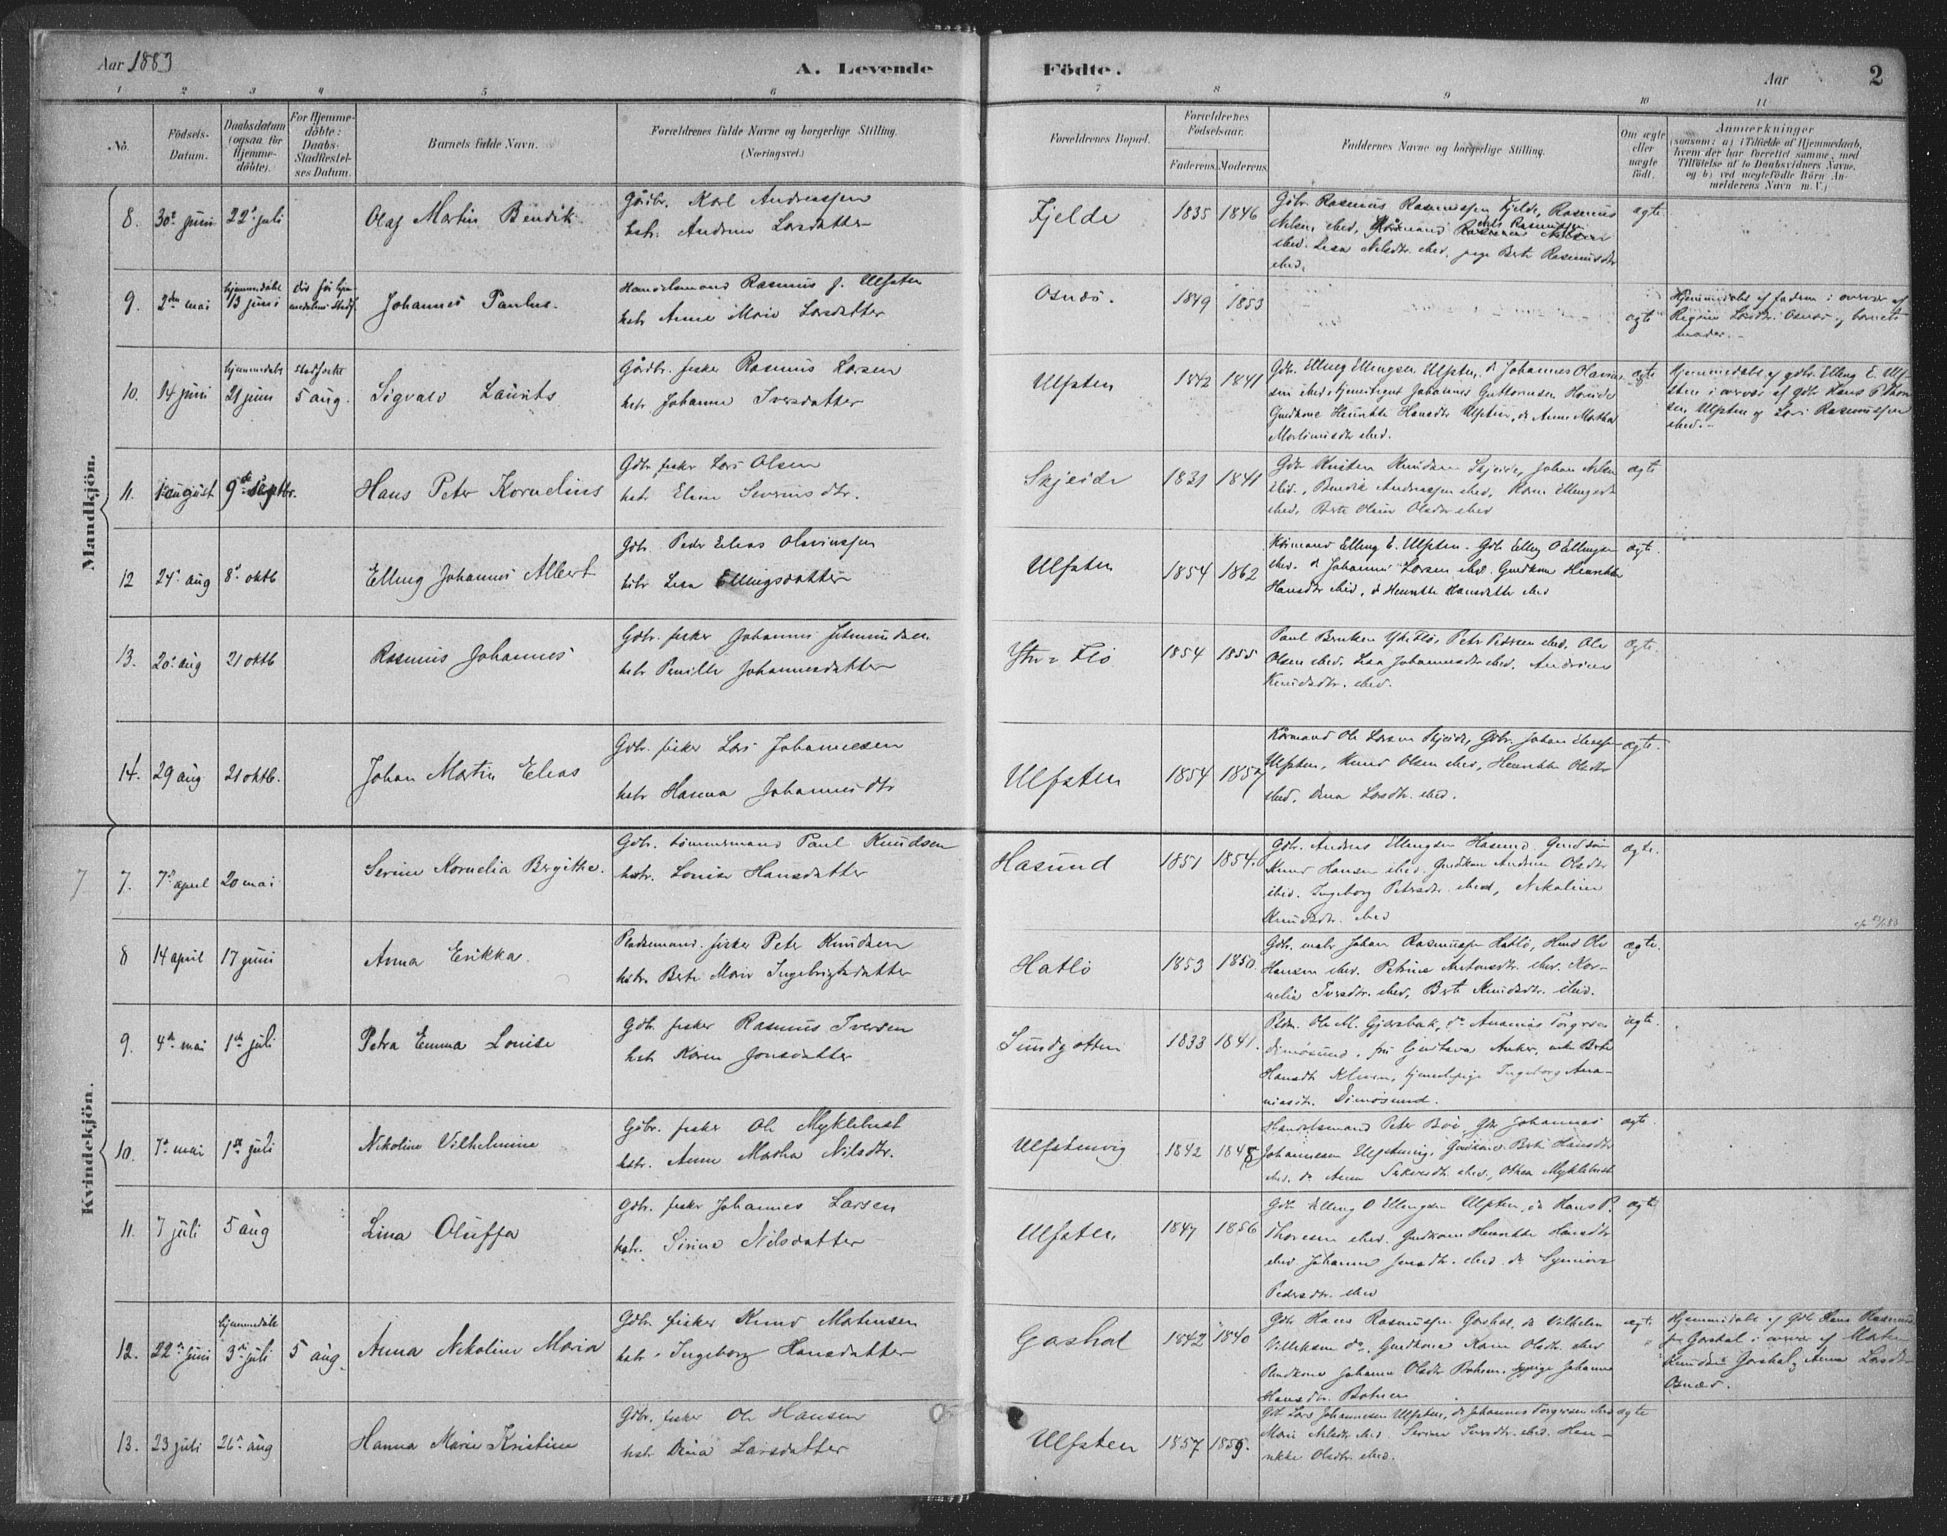 Aar 1883
A. Levende
Födte.
Aar
2
1 2 3 4 5 6 7 8 9 10 11
No.
Födsels-
Datum.
Daabsdatum
(ogsaa for
Hjemme-
döbte).
For Hjemme-
döbte:
Daabs-
Stadfæstel-
ses Datum.
Barnets fulde Navn.
Forældrenes fulde Navne og borgerlige Stilling.
(Næringsvei.)
Forældrenes Bopæl.
Forældrenes
Födselsaar.
Faderens. Moderens.
Faddernes Navne og borgerlige Stilling.
Om ægte
eller
uægte
födt.
Anmærkninger
(saasom: a) i Tilfælde af Hjemmedaab,
hvem der har forrettet samme, med
Tilföielse af to Daabsvidners Navne,
og b) ved uægtefödte Börn An-
melderens Navn m. V.)
Mandkjön.
8. 30t juni 22d juli Olaf Martin Bendik
Gårdbr. Karl Andreassen
hstr. Andrea Larsdatter
Fjelde 1835 1846
Gdbr. Rasmus Rasmussen Fjelde, Rasmus
ægte
9. 2den mai
hjemmedøbt
13 juni
Johannes Paulus.
Handelsmand Rasmus J. Ulfsten
hstr. Anne Marie Larsdatter
Osnæs. 1849 1853
ægte
Hjemmedøbt af faderen i overvær af
Regine Larsdtr. Osnæs og barnets
moder.
10. 14 juni
hjemmedøbt
21 juni
stadfæstet
5 aug.
Sigvald Laurits
Gårdbr. fisker Rasmus Larsen
hstr. Johanne Iversdatter
Ulfsten 1842 1841
Gdbr. Elling Ellingsen Ulfsten, do Johannes Olavsen
Gmdkone Henrikke Hansdtr Ulfsten, do Anne Martha
Martinusdtr ibid.
ægte
Hjemmedøbt af gdbr. Elling E. Ulf-
sten i overvær af Gdbr Hans P. Thor-
sen Ulfsten og Lars Rasmussen
ibid.
11. 1 august 9de septbr. Hans Peter Kornelius
Gdbr fisker Lars Olsen
hstr. Elen Severinsdtr.
Skjeide 1831 1841
ibid., Bendik Andreassen ibid, Karen Ellingsdtr
ibid, Berte Oline Olsdtr ibid
ægte
12 24d aug 8d oktb Elling Johannes Albert
Gdbr. Peder Elias Olavussen
hstr. Lisa Ellingsdatter
Ulfsten 1854 1862
Kårmand Elling E. Ulfsten. Gdbr Elling O Ellingsen
ibid. do Johannes Larsen ibid. Gmdkone Henrikke
Hansdtr ibid, do Henrikke Hansdatter ibid
ægte.
13. 20d aug 21 oktb Rasmus Johannes
Gdbr. fisker Johannes Jetmundsen
hstr Pernille Johannesdatter
Ytre Flø 1854 1855
Paul Ytreflø, Peter Pedersen ibid. Ole
Olsen ibid. Lisa Johannesdtr ibid. Andrine
Knudsdtr. ibid.
ægte.
14. 29 aug 21 oktb. Johan Martin Elias
Gdbr. fisker Lars Johannesen
hstr Hanna Johannesdtr
Ulfsten 1854 1857
Kårmand Ole Larsen Skjeide, Gdbr. Johan
Ulfsten, Knud Olsen ibid, Henrikke Olsdtr
ibid. Dina Larsdtr. ibid.
ægte.
Kvindekjön.
7
7. 7d april 20 mai Serine Kornelia Bergithe.
Gdbr. tømmermand Paul Knudsen
hstr. Lovise Hansdatter
Hasund 1851 1854
Gdbr. Andreas Ellingsen Hasund,
Knud Hansen ibid. Gmdkone Andrea Olsdtr
ibid. Ingeborg Petersdtr. ibid, Nikoline
Knudsdtr. ibid
ægte.
8 14 april 17 juni Anna Erikka.
Pladsemand. fisker Peter Knudsen
hstr. Berte Marie Ingebrigtsdatter
Hatlø 1853 1850.
Gdbr. maler Johan Rasmussen Hatlø, Knud Ole
Hansen ibid. Petrine Antonsdtr. ibid. Kor-
nelia Iversdtr. ibid, Berte Knudsdtr. ibid.
ægte.
9. 4de mai 1ste juli Petra Emma Louise
Gdbr. fisker Rasmus Iversen
hstr Karen Jonsdatter
Sundgotten 1833 1841.
Dimøsund. frk Gustava Anker,
Hansdtr tjenestepige Ingeborg Ana-
niasdtr. Dimøsund.
ægte.
10. 7d mai 1ste juli Nikoline Vilhelmine
Gdbr. fisker Ole Myklebust
hstr. Anne Martha Nilsdtr.
Ulfstenvig 1842 1848
Handelsmand Peter Bøe, Gdbr Johannes
Johannessen Ulfstenvig, Gmdkone Berte Hansdtr
ibid. do Anna ibid, Othea Myklebust
ægte.
11. 7 juli 5 aug Lina Oluffa
Gdbr. fisker Johannes Larsen
hstr. Sirine Nilsdatter
Ulfsten 1847 1856
Gdbr Elling O Ellingsen Ulfsten, do Hans P.
Thoresen ibid. Gmdkone Henrikke Hansdtr
ibid Johanne ibid. do Synnøve
Pedersdtr. ibid
ægte
12. 22de juni
hjemmedøbt
3die juli
5 aug. Anna Nikoline Maria
Gdbr. fisker Knud Martinsen
hstr. Ingeborg Hansdatter
Garshol 1842 1840
Gdbr Hans Rasmussen Garshol, do Vilhelm
Gmdkone Karen Olsdtr. ibid
Gmdkone Johanne Olsdtr Botnen, pige Johanne
Hansdtr. Botnen
ægte.
Hjemmedøbt af Gdbr Hans Rasmus-
sen Garshol i overvær af Martin
Knudsen Garshol og Anna Larsdtr
Osnæs.
13. 23 juli 26d aug Hanna Marie Kristine
Gdbr. fisker Ole Hansen
hstr Dina Larsdatter
Ulfsten 1857 1859.
Gdbr Lars Johannesen Ulfsten, do Johannes Torgersen ibid
Marie Nilsdtr ibid. Serine Iversdtr. ibid. Hen-
rikke Olsdtr. ibid.
ægte